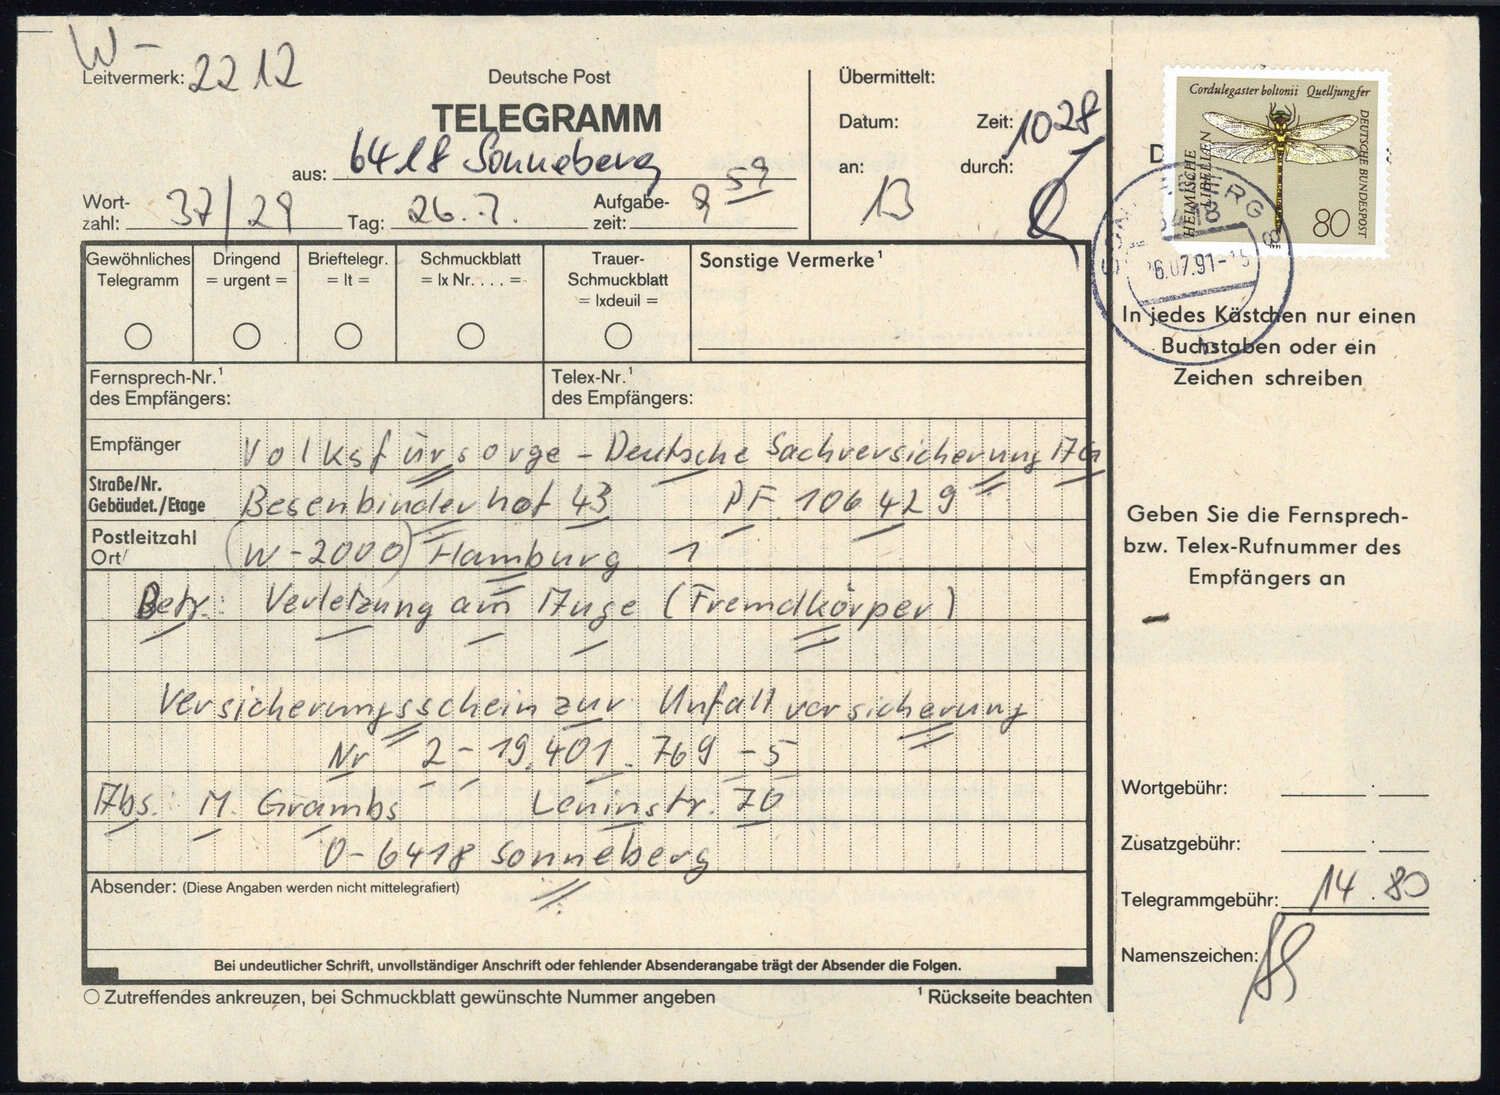 W-
Leitvermerk: 2212
Deutsche Post
TELEGRAMM
aus: 6418 Sonneberg
Wort-
zahl: 37/29
Tag: 26.7.
Aufgabe-
zeit: 9 59
Übermittelt:
Datum:
Zeit: 1028
an: 13
durch:
Gewöhnliches
Telegramm
Dringend
= urgent =
Brieftelegr.
= lt =
Schmuckblatt
= lx Nr. . . . =
Trauer-
Schmuckblatt
= lxdeuil =
Sonstige Vermerke¹
Fernsprech-Nr.¹
des Empfängers:
Telex-Nr.¹
des Empfängers:
Empfänger Volksfürsorge - Deutsche Sachversicherung AG
Straße/Nr.
Gebäudet./Etage Besenbinderhof 43 PF 106429
Postleitzahl
Ort/ (W-2000) Hamburg 1
Betr.: Verletzung am Auge (Fremdkörper)
Versicherungsschein zur Unfallversicherung
Nr 2-19.401.769-5
Abs.: M. Grambs Leninstr. 70
O-6418 Sonneberg
Absender: (Diese Angaben werden nicht mittelegrafiert)
Bei undeutlicher Schrift, unvollständiger Anschrift oder fehlender Absenderangabe trägt der Absender die Folgen.
Zutreffendes ankreuzen, bei Schmuckblatt gewünschte Nummer angeben
¹ Rückseite beachten
Cordulegaster boltonii Quelljungfer
HEIMISCHE
LIBELLEN
DEUTSCHE BUNDESPOST
80
6418
26.07.91-15
In jedes Kästchen nur einen
Buchstaben oder ein
Zeichen schreiben
Geben Sie die Fernsprech-
bzw. Telex-Rufnummer des
Empfängers an
Wortgebühr:
Zusatzgebühr:
Telegrammgebühr: 14.80
Namenszeichen: